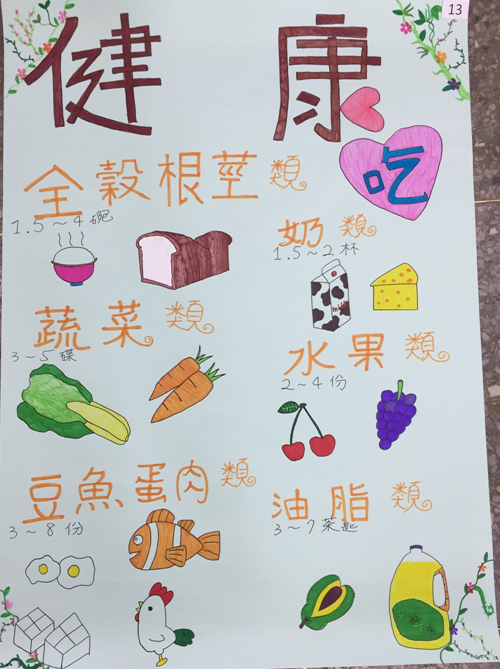 13
健康
吃
全穀根莖類
1.5～4碗
奶類
1.5～2杯
蔬菜類
3～5碟
水果類
2～4份
豆魚蛋肉類
3～8份
油脂類
3～7茶匙